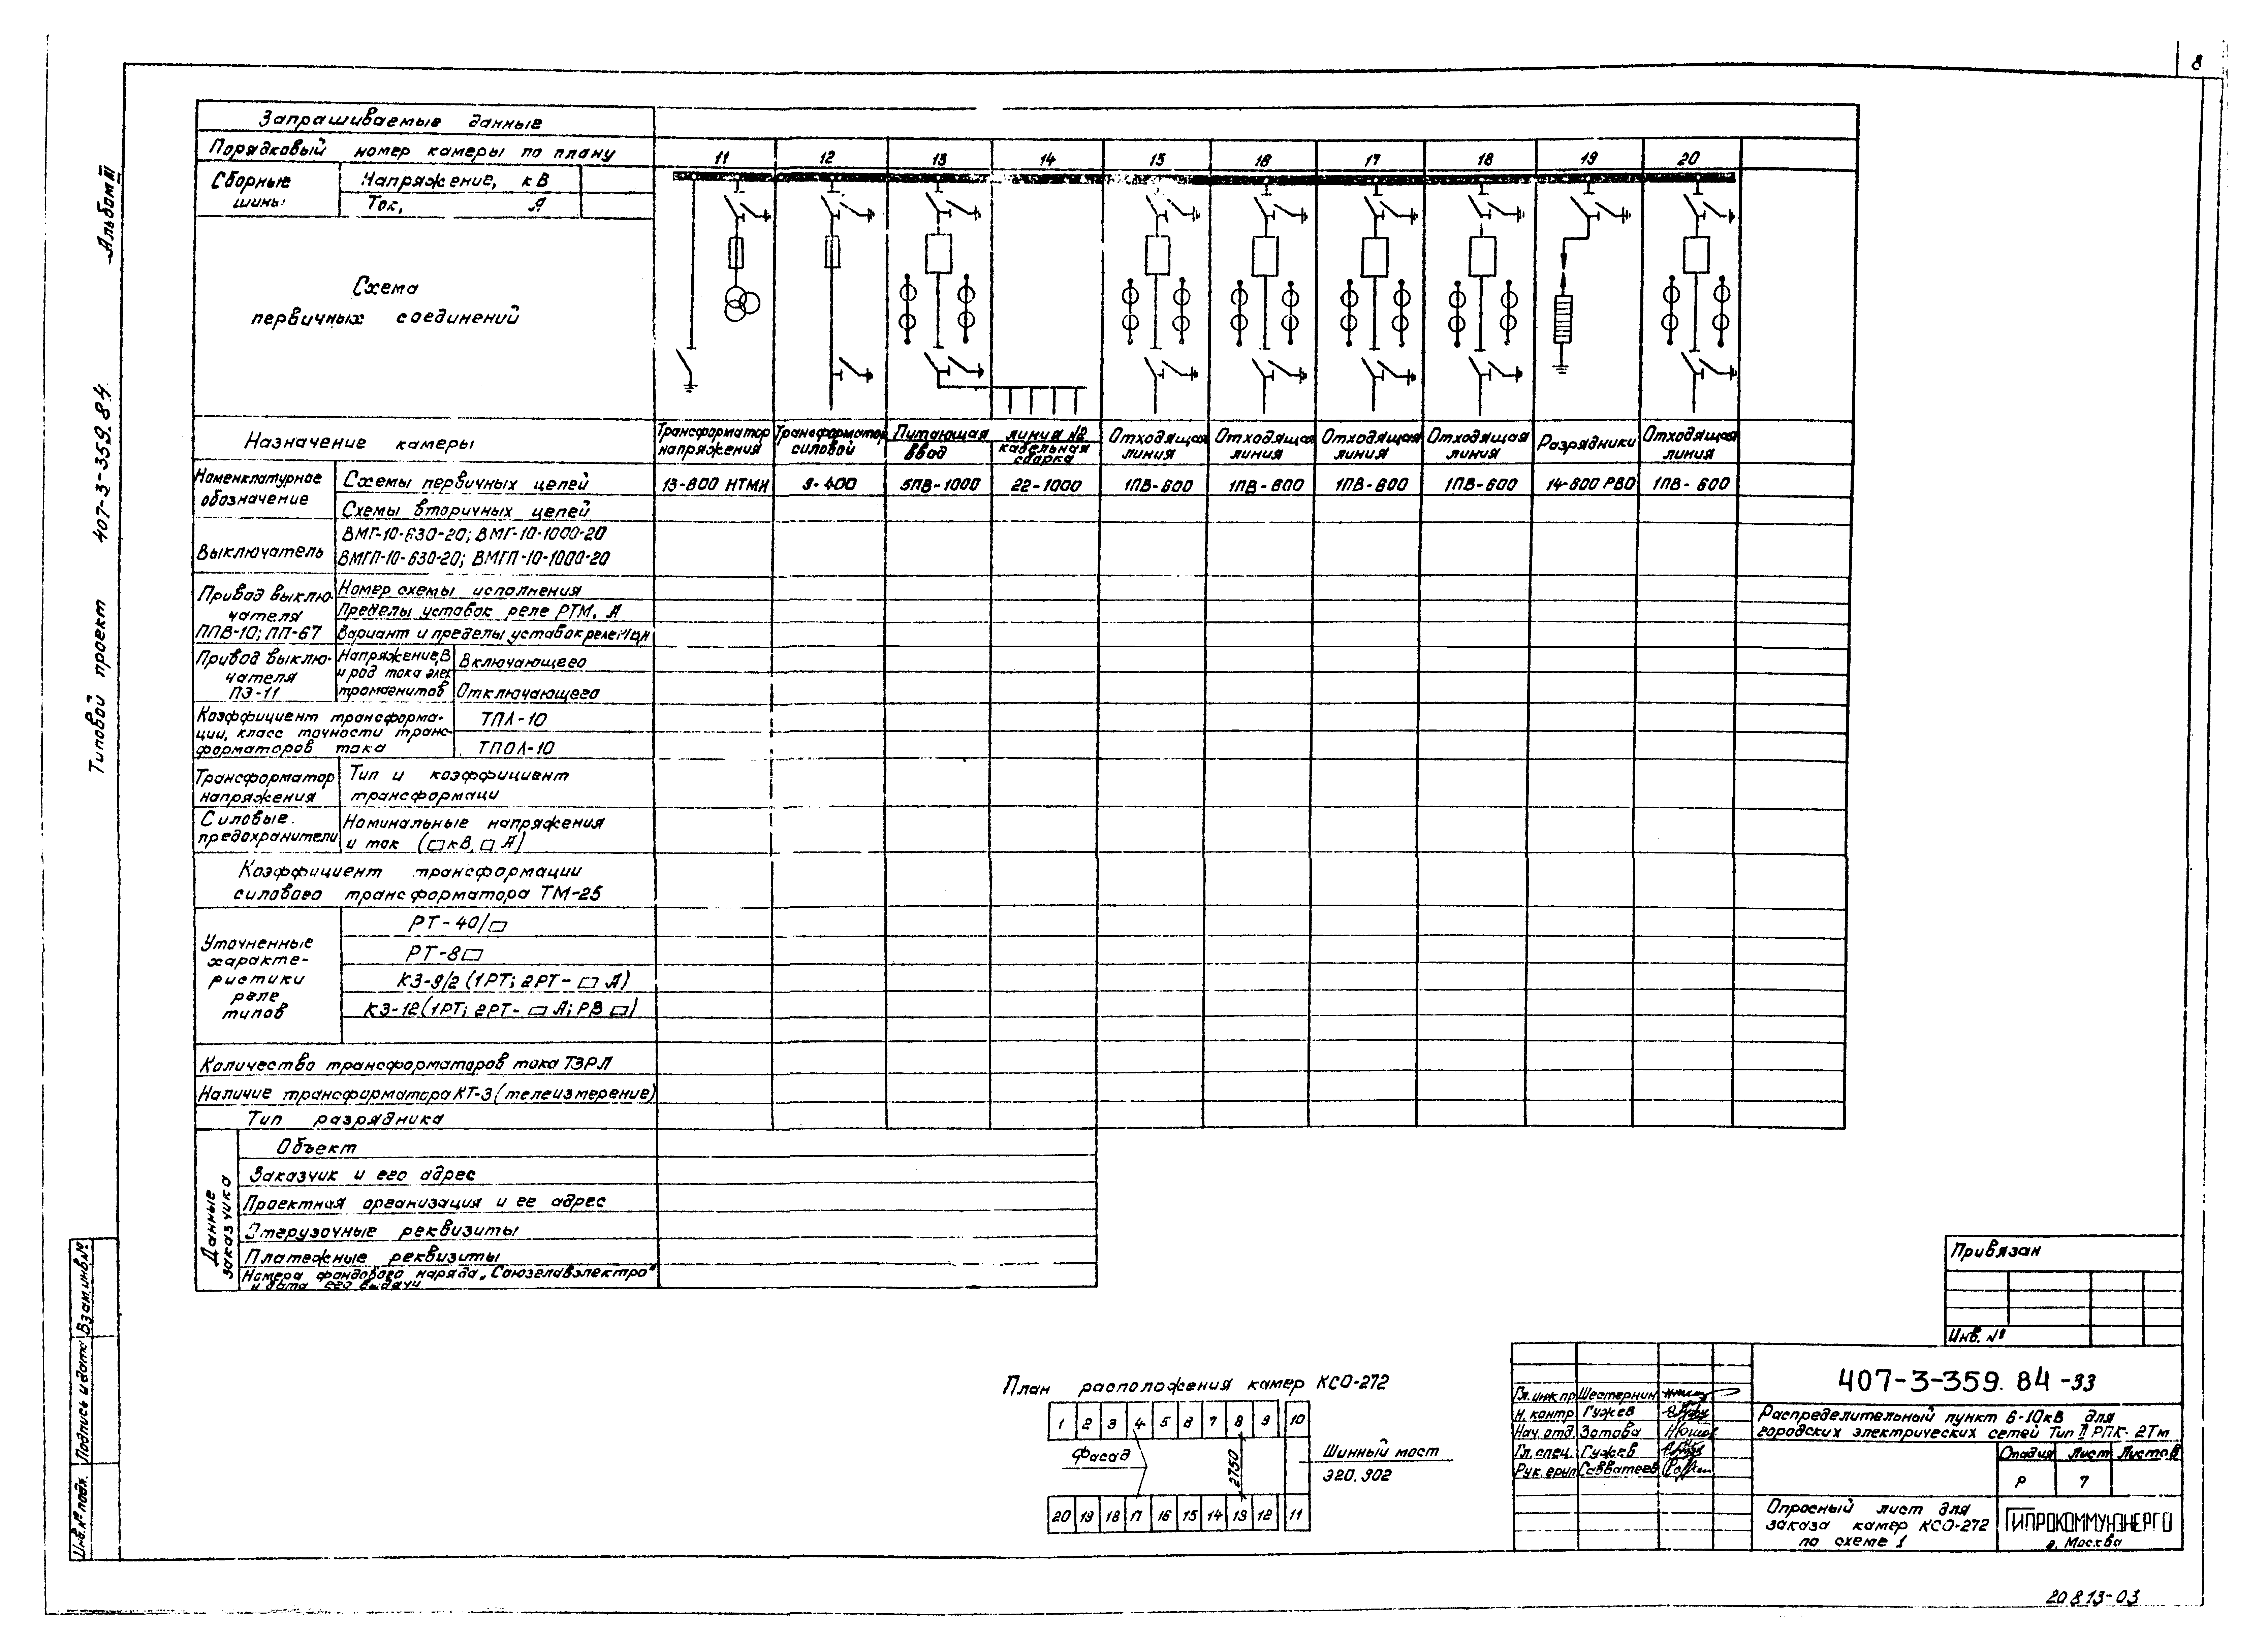 8
Альбом III
Типовой проект 407-3-359.84
Запрашиваемые данные
Порядковый номер камеры по плану
11 12 13 14 15 16 17 18 19 20
Сборные шины
Напряжение, кВ
Ток, А
Схема
первичных соединений
Назначение камеры
Трансформатор напряжения
Трансформатор силовой
Питающая линия №
Ввод
кабельная сборка
Отходящая линия
Отходящая линия
Отходящая линия
Отходящая линия
Разрядники
Отходящая линия
Номенклатурное обозначение
Схемы первичных цепей
13-800 НТМИ 9-400 5ПВ-1000 22-1000 1ПВ-600 1ПВ-600 1ПВ-600 1ПВ-600 14-800 РВО 1ПВ-600
Схемы вторичных цепей
Выключатель
ВМГ-10-630-20; ВМГ-10-1000-20
ВМГП-10-630-20; ВМГП-10-1000-20
Привод выключателя
ППВ-10; ПП-67
Номер схемы исполнения
Пределы уставок реле РТМ, А
Вариант и пределы уставок реле
Привод выключателя
ПЭ-11
Напряжение, В
и род тока элек
тромагнитов
Включающего
Отключающего
Коэффициент трансформа-
ции, класс точности транс-
форматоров тока
ТПЛ-10
ТПОЛ-10
Трансформатор напряжения
Тип и коэффициент
трансформаци
Силовые предохранители
Номинальные напряжения
и ток (□кВ, □ А)
Коэффициент трансформации
силового трансформатора ТМ-25
Уточненные
характе-
ристики
реле
типов
РТ-40/□
РТ-8□
КЗ-9/2 (1РТ; 2РТ-□ А)
КЗ-12 (1РТ; 2РТ-□ А; РВ □)
Количество трансформаторов тока ТЗРЛ
Наличие трансформатора КТ-3 (телеизмерение)
Тип разрядника
Данные заказчика
Объект
Заказчик и его адрес
Проектная организация и ее адрес
Отгрузочные реквизиты
Платежные реквизиты
Номера фондового наряда „Союзглавэлектро"
и дата его выдачи
План расположения камер КСО-272
1 2 3 4 5 6 7 8 9 10
Фасад
2750
Шинный мост
Э20.902
20 19 18 17 16 15 14 13 12 11
Привязан
Инв. №
Гл. инж пр Шестернин
Н. контр. Гужев
Нач. отд. Зотова
Гл. спец. Гужев
Рук. груп Савватеев
407-3-359.84-33
Распределительный пункт 6-10кВ для
городских электрических сетей Тип II РПК-2Тм
Стадия Лист Листов
Р 7
Опросный лист для
заказа камер КСО-272
по схеме 1
ГИПРОКОММУНЭНЕРГО
г. Москва
20813-03
Инв. № подл. Подпись и дата Взам. инв. №